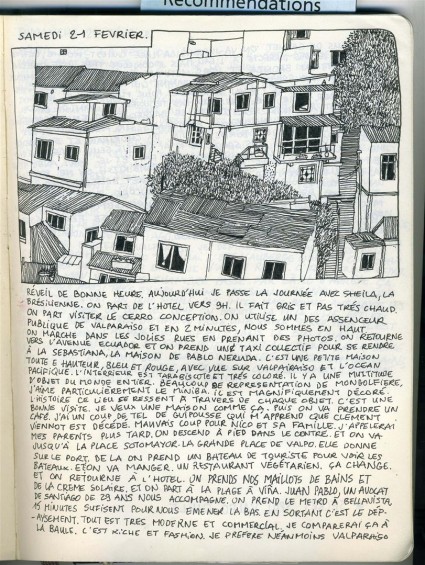 Recommendations
SAMEDI 21 FEVRIER.
RÉVEIL DE BONNE HEURE, AUJOURD'HUI JE PASSE LA JOURNÉE AVEC SHEILA, LA
BRÉSILIENNE. ON PART DE L'HOTEL VERS 9H. IL FAIT GRIS ET PAS TRÉS CHAUD.
ON PART VISITER LE CERRO CONCEPTION. ON UTILISE UN DES ASSENCEUR
PUBLIQUE DE VALPARAISO ET EN 2 MINUTES, NOUS SOMMES EN HAUT.
ON MARCHE DANS LES JOLIES RUES EN PRENANT DES PHOTOS. ON RETOURNE
VERS L'AVENUE ECUADOR ET ON PREND UN TAXI COLECTIF POUR SE RENDRE
À LA SEBASTIANA, LA MAISON DE PABLO NERUDA. C'EST UNE PETITE MAISON
TOUTE E HAUTEUR, BLEU ET ROUGE, AVEC VUE SUR VALPARAISO ET L'OCEAN
PACIFIQUE. L'INTERIEUR EST TARABISCOTÉ ET TRÉS COLORÉ. IL Y A UNE MULTITUDE
D'OBJET DU MONDE ENTIER. BEAUCOUP DE REPRESENTATION DE MONGOLFIÈRE,
J'AIME PARTICULIÈREMENT LE MINIBA. IL EST MAGNIFIQUEMENT DÉCORÉ.
L'HISTOIRE CE LIEU SE RESSENT A TRAVERS DE CHAQUE OBJET. C'EST UNE
BONNE VISITE. JE VEUX UNE MAISON COMME ÇA. PUIS ON VA PRENDRE UN
CAFÉ. J'AI UN COUP DE TEL DE GUIPOUSSE QUI M'APPREND QUE CLEMENT
VIENNOT EST DÉCÉDÉ. MAUVAIS COUP POUR NICO ET SA FAMILLE. J'APELERAI
MES PARENTS PLUS TARD. ON DESCEND À PIED DANS LE CENTRE. ET ON VA
JUSQU'À LA PLACE SOTOMAYOR. LA GRANDE PLACE DE VALPO. ELLE DONNE
SUR LE PORT. DE LA ON PREND UN BATEAU DE TOURISTE POUR VOIR LES
BATEAUX. ET ON VA MANGER. UN RESTAURANT VEGETARIEN. ÇA CHANGE.
ET ON RETOURNE À L'HOTEL. ON PRENDS NOS MAILLOTS DE BAINS ET
DE LA CREME SOLAIRE, ET ON PART À LA PLAGE À VIÑA. JUAN PABLO, UN AVOCAT
DE SANTIAGO DE 29 ANS NOUS ACCOMPAGNE. ON PREND LE METRO À BELLAVISTA.
15 MINUTES SUFISENT POUR NOUS EMENER LA BAS. EN SORTANT C'EST LE DÉP-
-AYSEMENT. TOUT EST TRES MODERNE ET COMMERCIAL. JE COMPARERAI ÇA À
LA BAULE. C'EST KICHE ET FASHION. JE PREFERE NÉANMOINS VALPARAISO